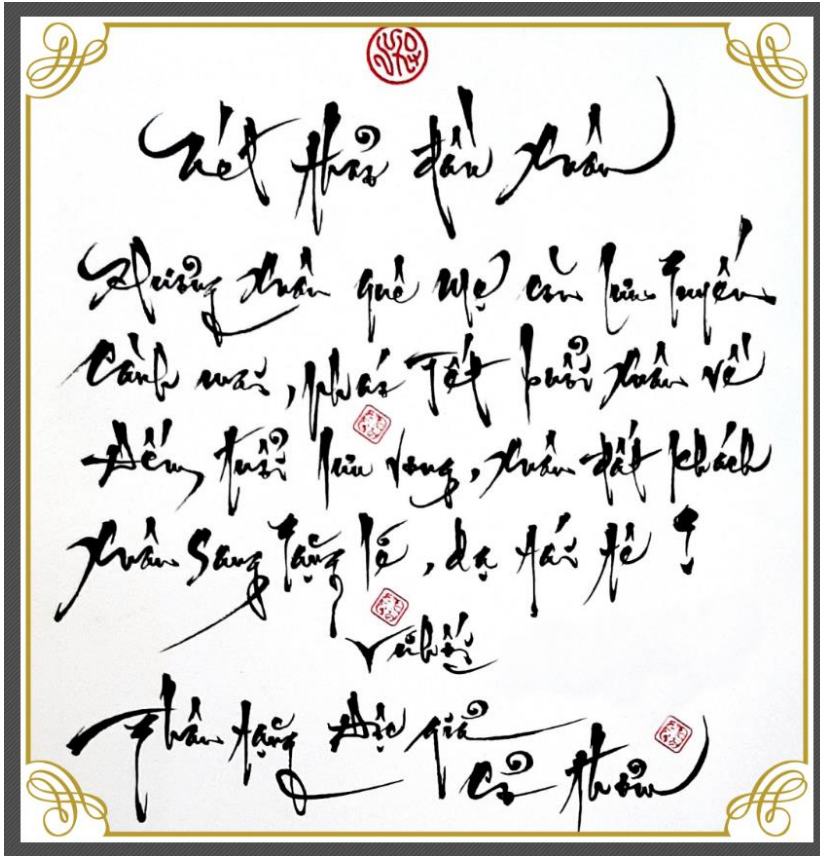 Nét thảo đầu xuân
Hương xuân quê Mẹ còn lưu luyến
Cành mai, pháo Tết buổi xuân về
Đếm tuổi lưu vong, xuân đất khách
Xuân sang lặng lẽ, dạ tái tê !
Vũ Hối
Thân tặng Độc giả
Cỏ Thơm